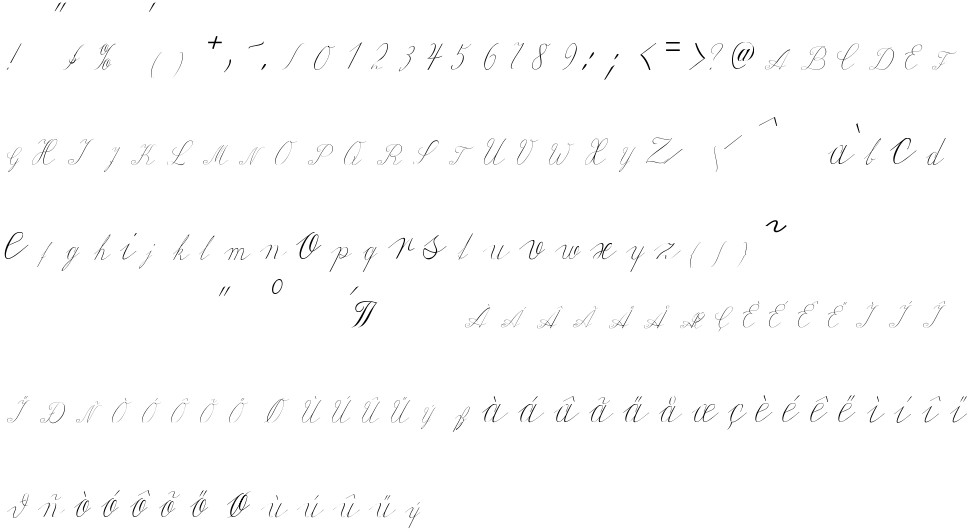 ! " $ % ' ( ) + , - . 1 0 1 2 3 4 5 6 7 8 9 : ; < = > ? @ A B C D E F
G H I J K L M N O P Q R S T U V W X Y Z ^ ` a b c d
e f g h i j k l m n o p q r s t u v w x y z ( ) ~
¨ ° ´ ¶ À Á Â Ã Ä Å Æ Ç È É Ê Ë Ì Í Î
Ï Ð Ñ Ò Ó Ô Õ Ö Ø Ù Ú Û Ü Ý ß à á â ã ä å æ ç è é ê ë ì í î ï
ð ñ ò ó ô õ ö ø ù ú û ü ý